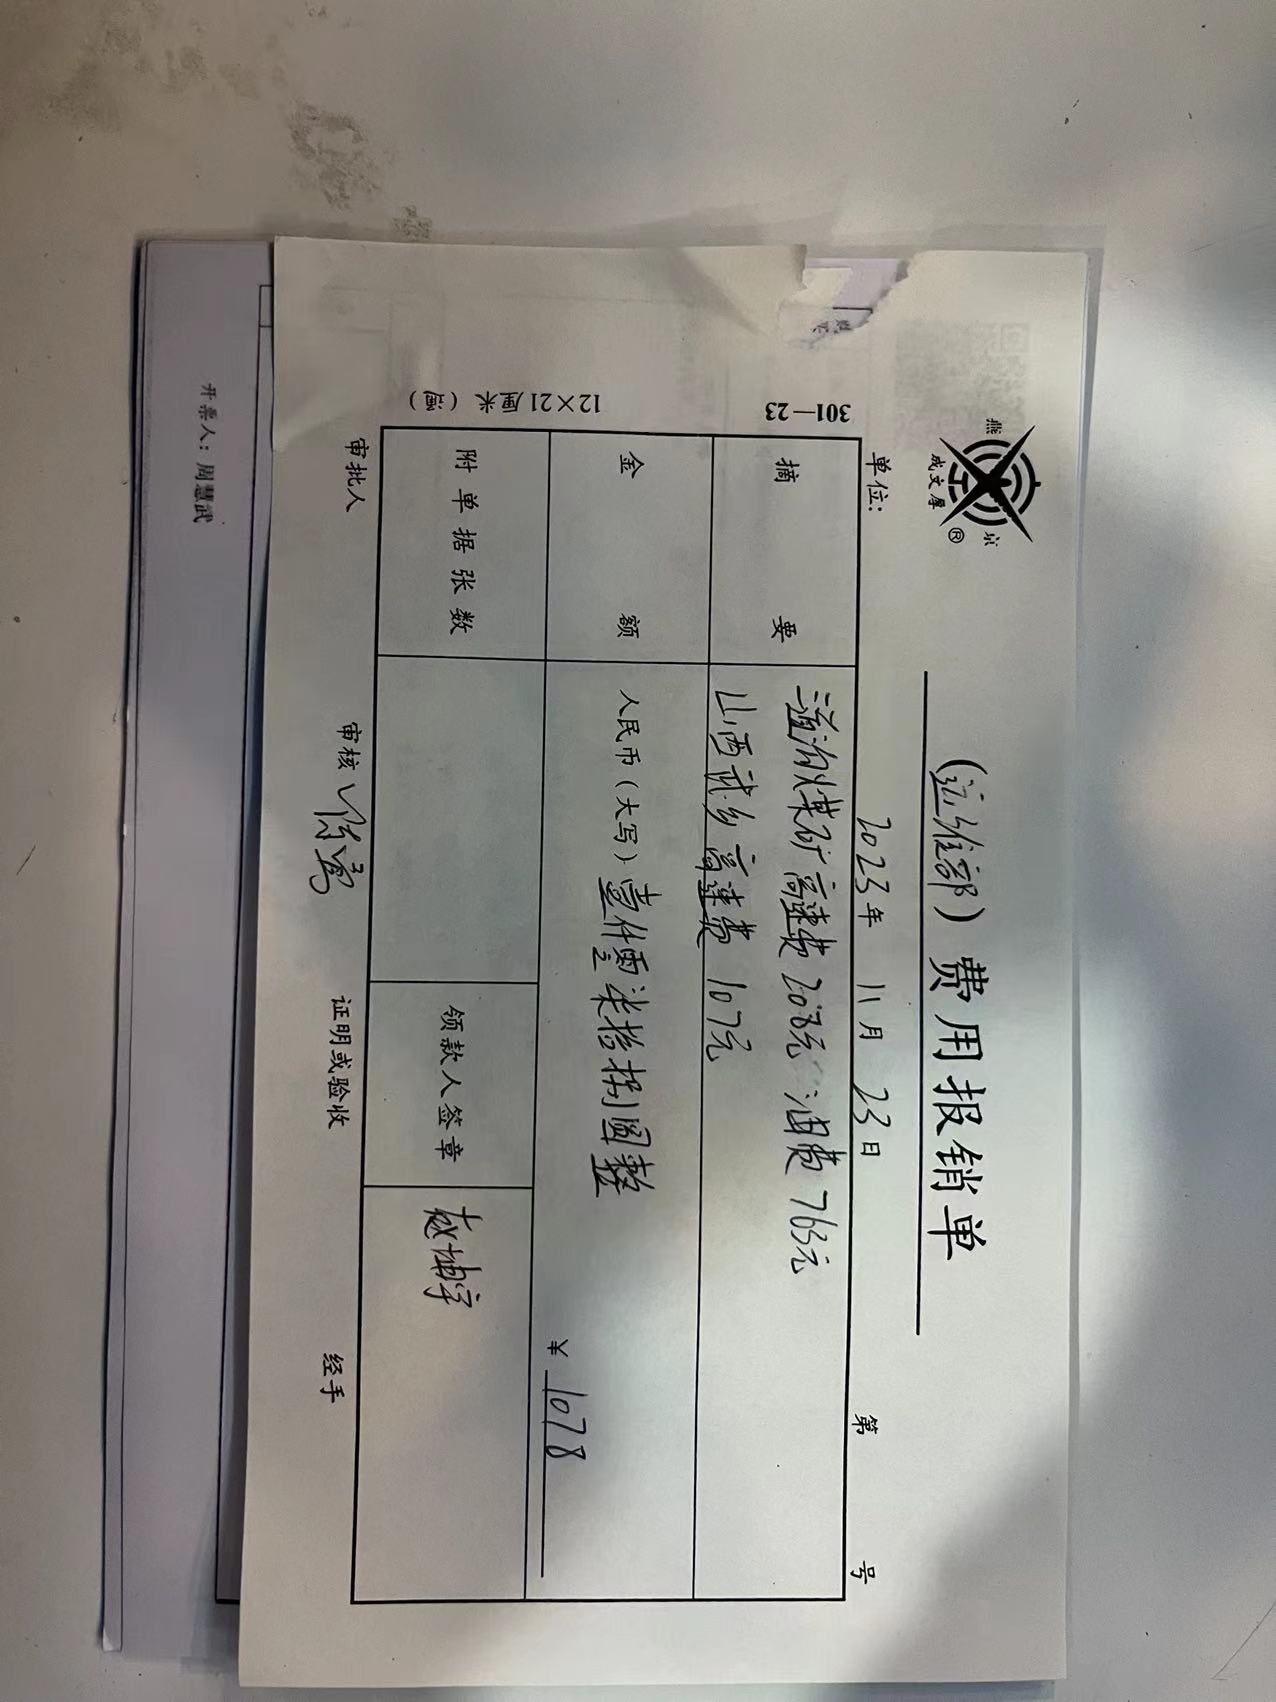 燕京
成文厚
®
(运维部)费用报销单
单位:
2023年 11月 23日
第 号
301—23
12×21厘米 (通)
摘要
滋沟煤矿高速费208元 油费763元
山西武乡高速费107元
金额
人民币(大写)壹仟零柒拾捌圆整
¥ 1078
附单据张数
领款人签章
赵坤宇
审批人
审核
证明或验收
经手
开票人: 周慧武